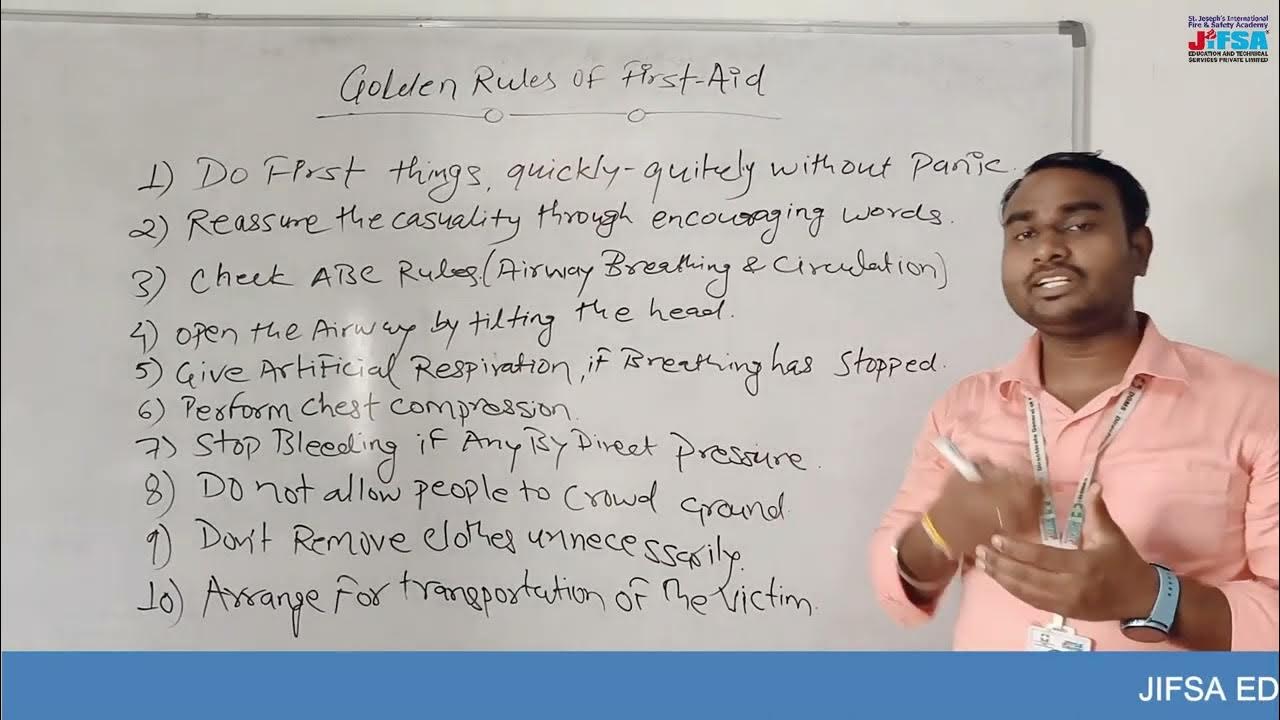 St. Joseph's International
Fire & Safety Academy
JIFSA
EDUCATION AND TECHNICAL
SERVICES PRIVATE LIMITED
Golden Rules of First-Aid
1) Do First things, quickly-quitely without panic.
2) Reassure the casuality through encouraging words.
3) Check ABC Rules. (Airway Breathing & Circulation)
4) Open the Airway by tilting the head.
5) Give Artificial Respiration, if Breathing has stopped.
6) Perform chest compression.
7) Stop Bleeding if Any By Direct pressure.
8) Do not allow people to crowd ground.
9) Don't Remove clothes unnecessarily.
10) Arrange for transportation of the victim.
JIFSA ED